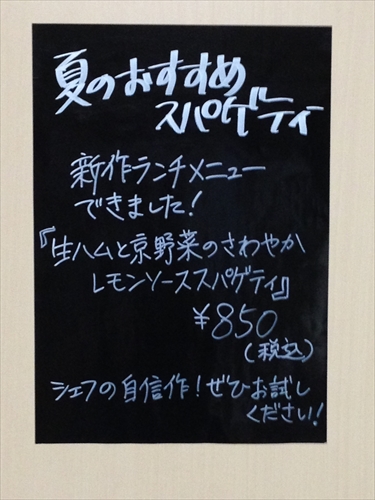 夏のおすすめ
スパゲティ
新作ランチメニュー
できました!
『生ハムと京野菜のさわやか
レモンソーススパゲティ』
¥850
(税込)
シェフの自信作!ぜひお試し
ください!